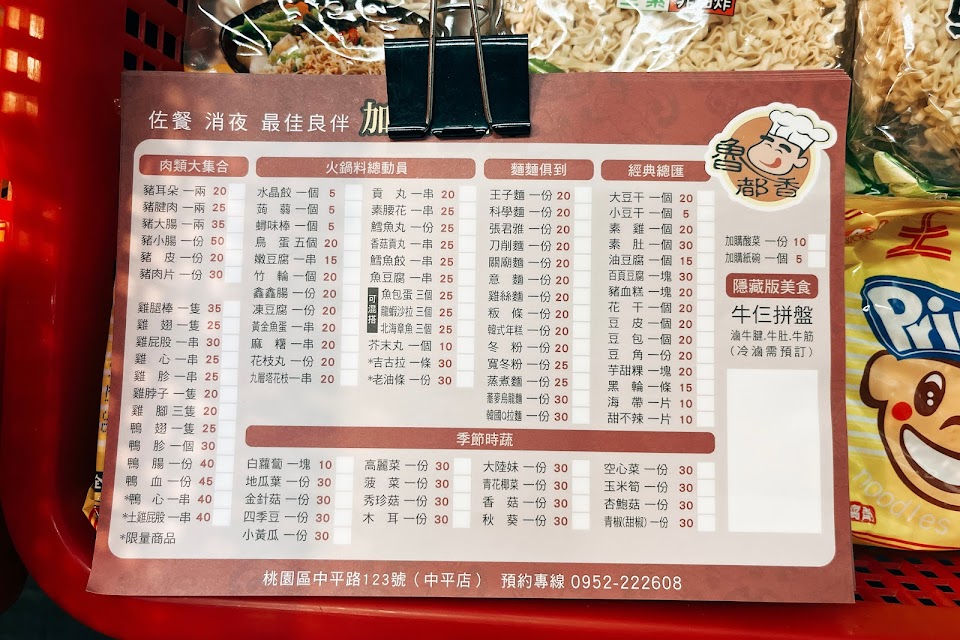 佐餐 消夜 最佳良伴 加
魯
都香
肉類大集合
豬耳朵 一兩 20
豬腱肉 一兩 25
豬大腸 一兩 35
豬小腸 一份 50
豬皮 一份 20
豬肉片 一份 30
雞腿棒 一隻 35
雞翅 一隻 25
雞屁股 一串 30
雞心 一串 25
雞胗 一串 25
雞脖子 一隻 20
雞腳 三隻 20
鴨翅 一隻 25
鴨胗 一個 30
鴨腸 一份 40
鴨血 一份 45
*鴨心 一串 40
*土雞屁股 一串 40
*限量商品
火鍋料總動員
水晶餃 一個 5
蒟蒻 一個 5
蟳味棒 一個 5
鳥蛋 五個 20
嫩豆腐 一串 15
竹輪 一個 20
鑫鑫腸 一份 20
凍豆腐 一份 20
黃金魚蛋 一串 20
麻糬 一串 20
花枝丸 一份 20
九層塔花枝 一串 20
貢丸 一串 20
素腰花 一串 25
鱈魚丸 一份 25
香菇貢丸 一串 25
鱈魚餃 一串 25
魚豆腐 一串 25
可混搭
魚包蛋 三個 25
龍蝦沙拉 三個 25
北海章魚 三個 25
芥末丸 一個 10
*吉古拉 一條 30
*老油條 一份 30
麵麵俱到
王子麵 一份 20
科學麵 一份 20
張君雅 一份 20
刀削麵 一份 20
關廟麵 一份 20
意麵 一份 20
雞絲麵 一份 20
粄條 一份 20
韓式年糕 一份 20
冬粉 一份 20
寬冬粉 一份 25
蒸煮麵 一份 25
蕎麥烏龍麵 一份 30
韓國Q拉麵 一份 30
經典總匯
大豆干 一個 20
小豆干 一個 5
素雞 一個 20
素肚 一個 30
油豆腐 一個 15
百頁豆腐 一塊 30
豬血糕 一塊 20
花干 一個 20
豆皮 一個 20
豆包 一個 20
豆角 一份 20
芋甜粿 一塊 20
黑輪 一條 15
海帶 一片 10
甜不辣 一片 10
加購酸菜 一份 10
加購紙碗 一個 5
隱藏版美食
牛仨拼盤
滷牛腱.牛肚.牛筋
(冷滷需預訂)
季節時蔬
白蘿蔔 一塊 10
地瓜葉 一份 30
金針菇 一份 30
四季豆 一份 30
小黃瓜 一份 30
高麗菜 一份 30
菠菜 一份 30
秀珍菇 一份 30
木耳 一份 30
大陸妹 一份 30
青花椰菜 一份 30
香菇 一份 30
秋葵 一份 30
空心菜 一份 30
玉米筍 一份 30
杏鮑菇 一份 30
青椒(甜椒) 一份 30
桃園區中平路123號(中平店) 預約專線 0952-222608
Pri
noodles